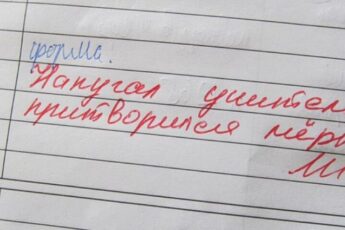 форма.
Напугал учител
притворился мёр